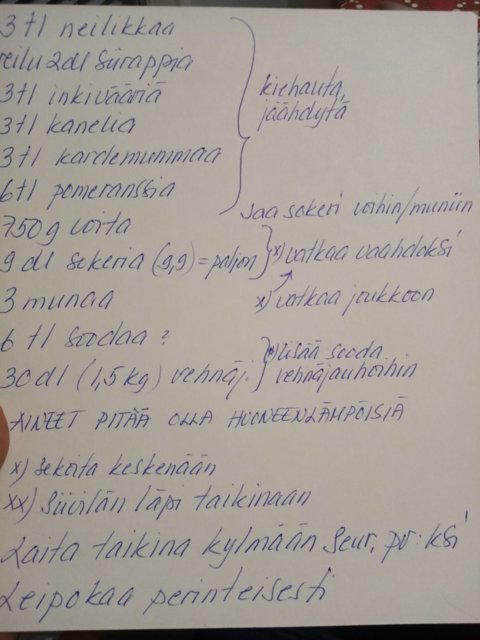 3 tl neilikkaa
reilu 2dl Siirappia
3 tl inkivääriä
3 tl kanelia
3 tl kardemummaa
6 tl pomeranssia
kiehauta,
jäähdytä
Jaa sokeri voihin/muniin
750g voita
9 dl sokeria (9,9) = paljon
x) vatkaa vaahdoksi
3 munaa
x) vatkaa joukkoon
6 tl soodaa ?
30dl (1,5 kg) vehnäj.
x) lisää sooda
vehnäjauhoihin
AINEET PITÄÄ OLLA HUONEENLÄMPÖISIÄ
x) Sekoita keskenään
xx) Siivilän läpi taikinaan
Laita taikina kylmään seur. pv:ksi
Leipokaa perinteisesti